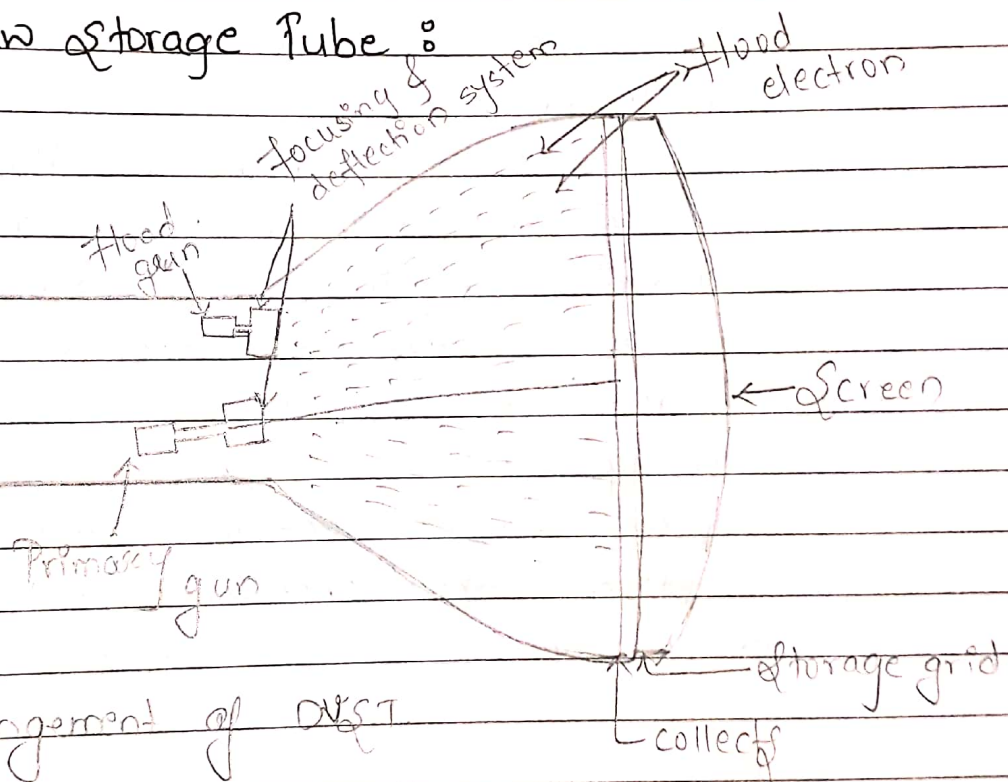 w Storage Tube :
focusing &
deflection system
flood
electron
flood
gun
Screen
Primary
gun
Storage grid
ngement of DVST
collects